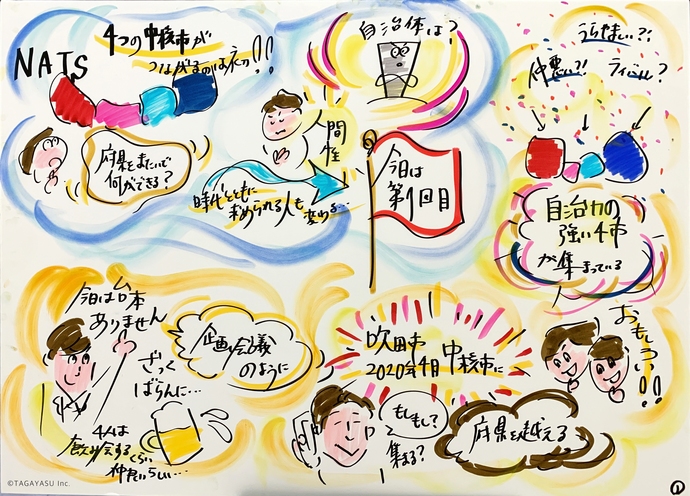 NATS
4つの中核市が
つながるのは
府県をまたいで
何ができる?
自治体は?
人間性
時代とともに
求められる人も
変わる…
今日は
第1回目
うらやましい?!
仲悪い?!
ライバル?
自治力の
強い4市
が集まっている
今日は台本
ありません
ざっく
ばらんに…
企画会議
のように
4人は
飲み会するくらい
仲良いらしい…
吹田市
2020年4月 中核市に
もしもし?
集まる?
府県を越える
おもしろい!!
©TAGAYASU Inc.
1